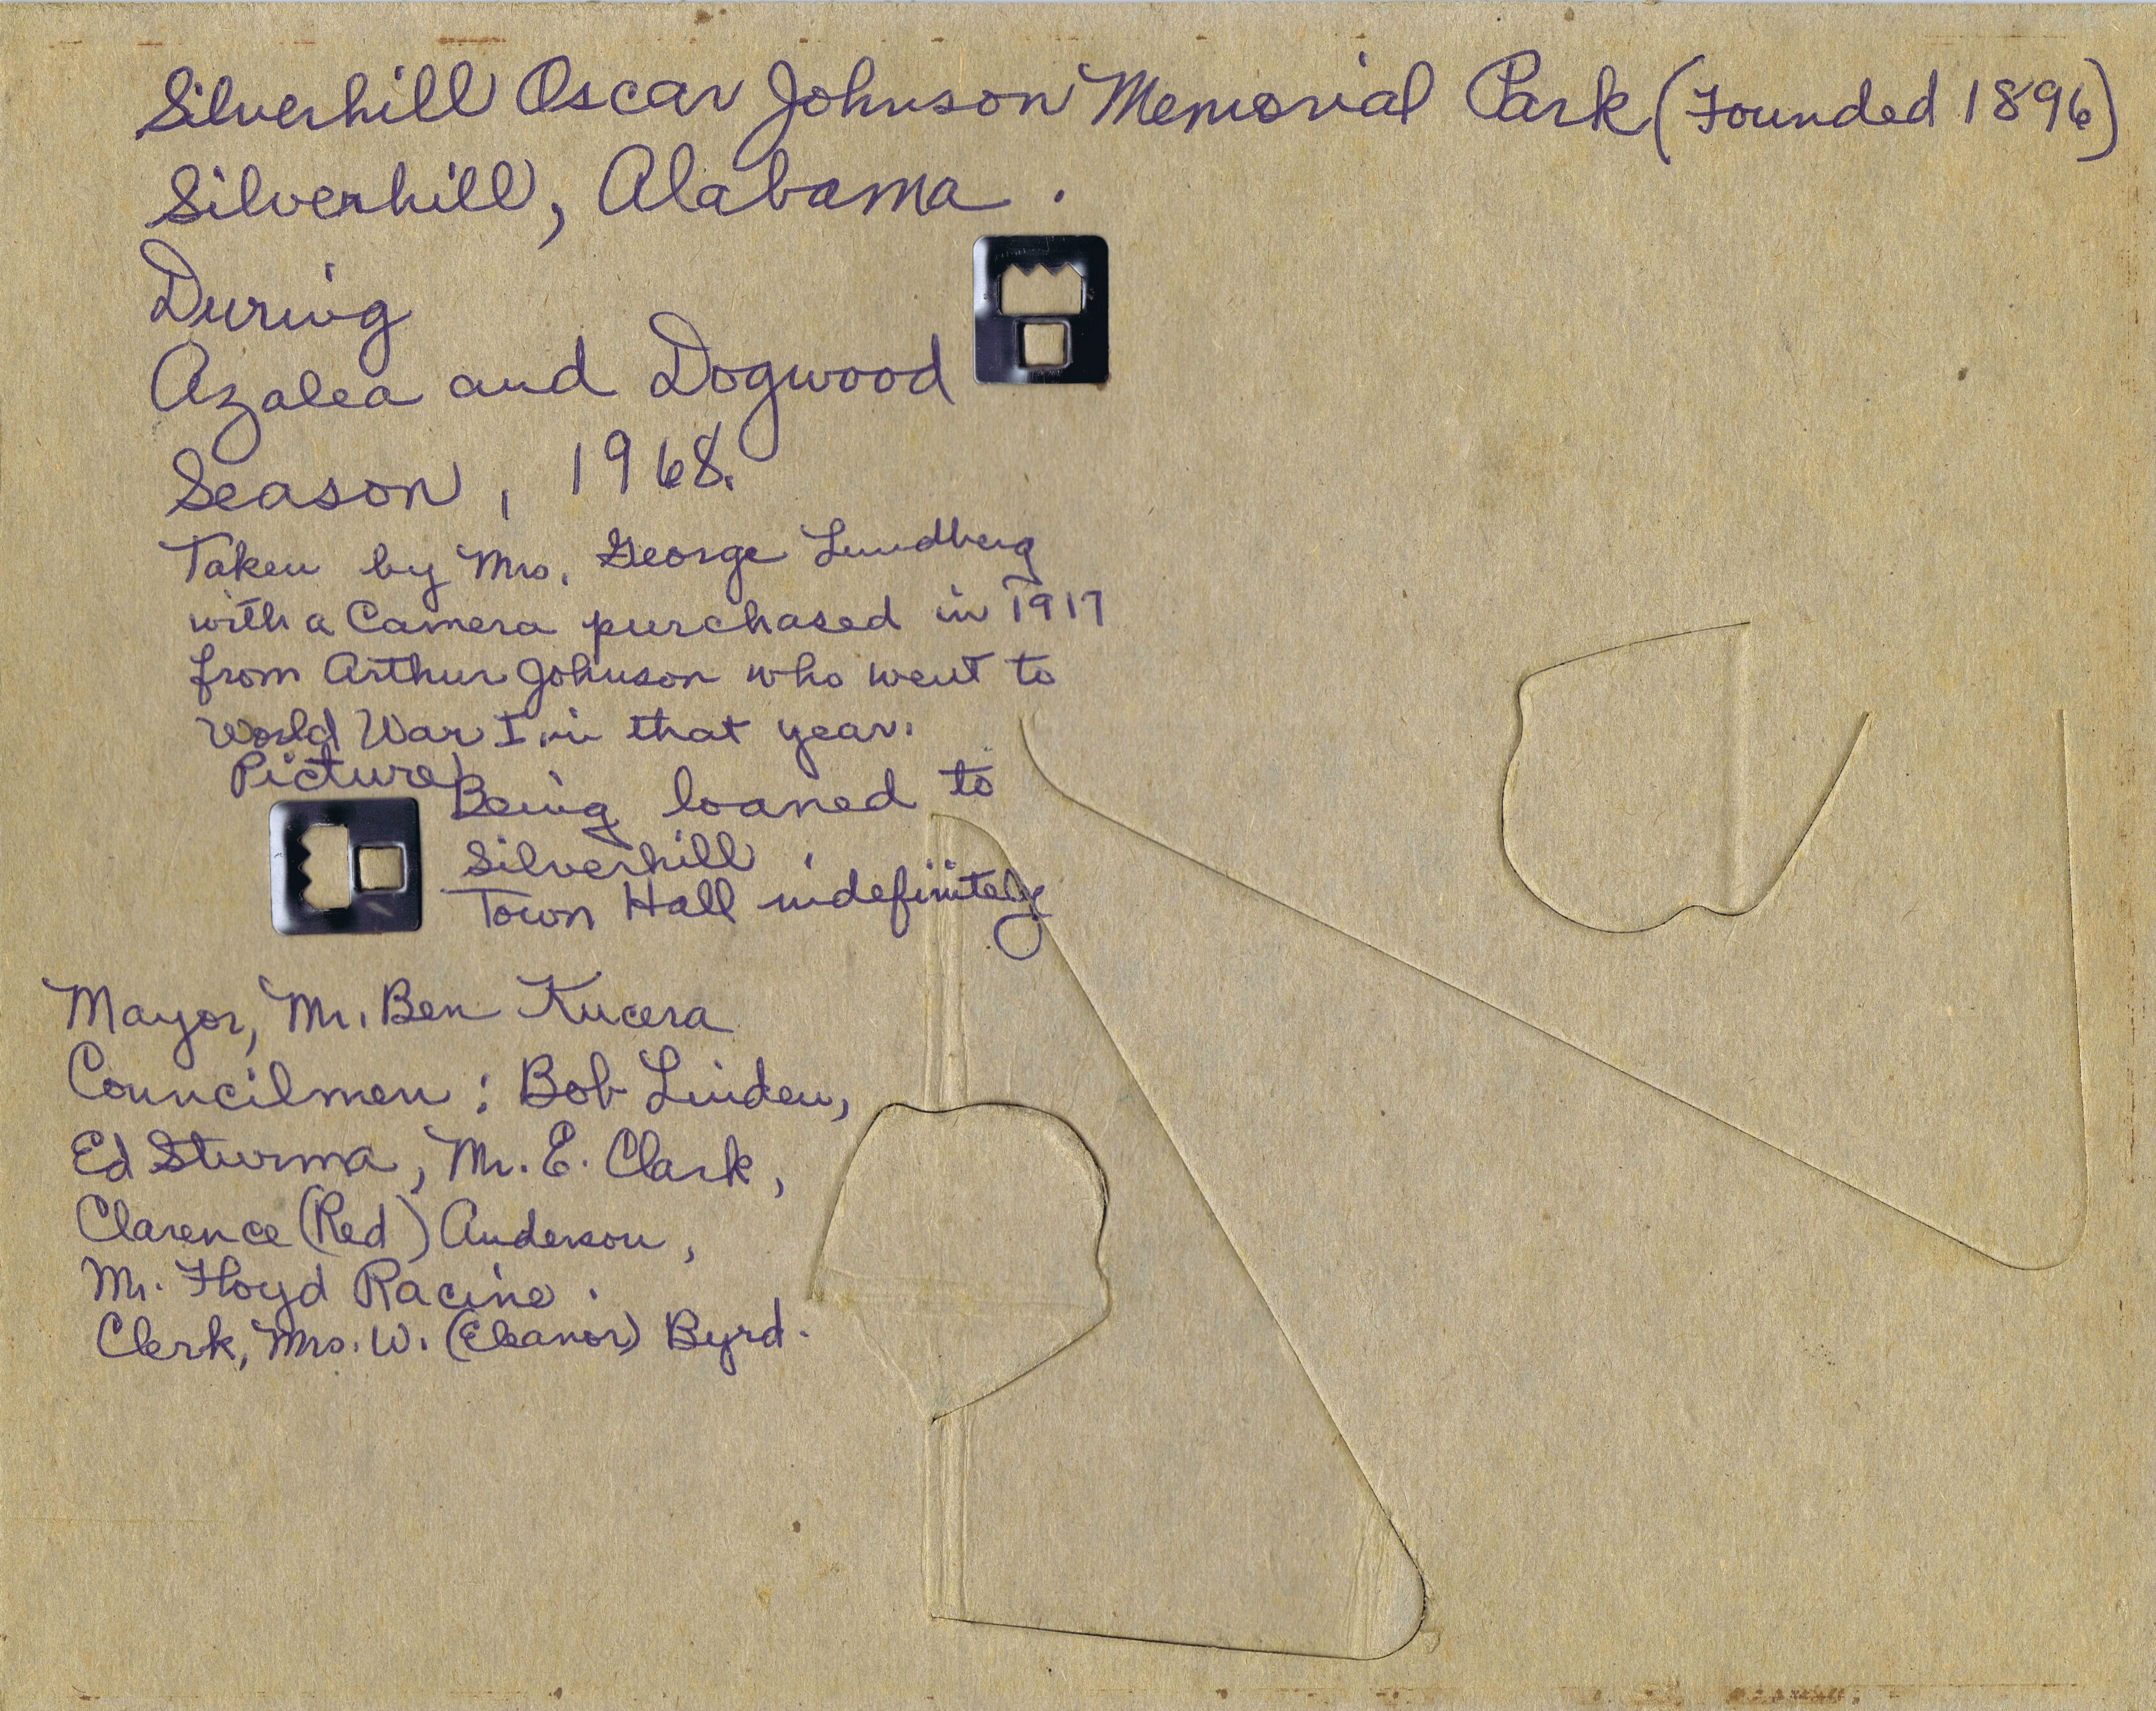 Silverhill Oscar Johnson Memorial Park (Founded 1896)
Silverhill, Alabama.
During
Azalea and Dogwood
Season, 1968.
Taken by Mrs. George Lundberg
with a Camera purchased in 1917
from Arthur Johnson who went to
World War I in that year.
Picture Being loaned to
Silverhill
Town Hall indefinitely
Mayor, Mr. Ben Kucera
Councilmen: Bob Linden,
Ed Sturma, Mr. E. Clark,
Clarence (Red) Anderson,
Mr. Floyd Racine.
Clerk, Mrs. W. (Eleanor) Byrd.